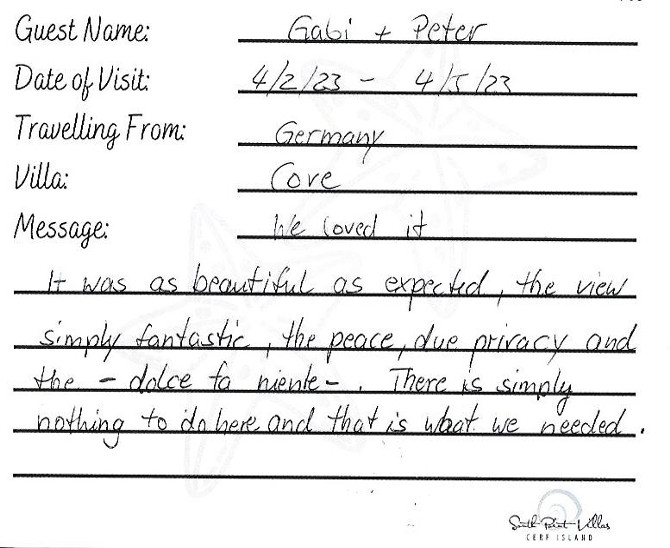 Guest Name: Gabi + Peter
Date of Visit: 4/2/23 - 4/5/23
Travelling From: Germany
Villa: Cove
Message: We loved it
It was as beautiful as expected, the view
simply fantastic, the peace, due privacy and
the - dolce fa niente - . There is simply
nothing to do here and that is what we needed.
South Point Villas
CERF ISLAND